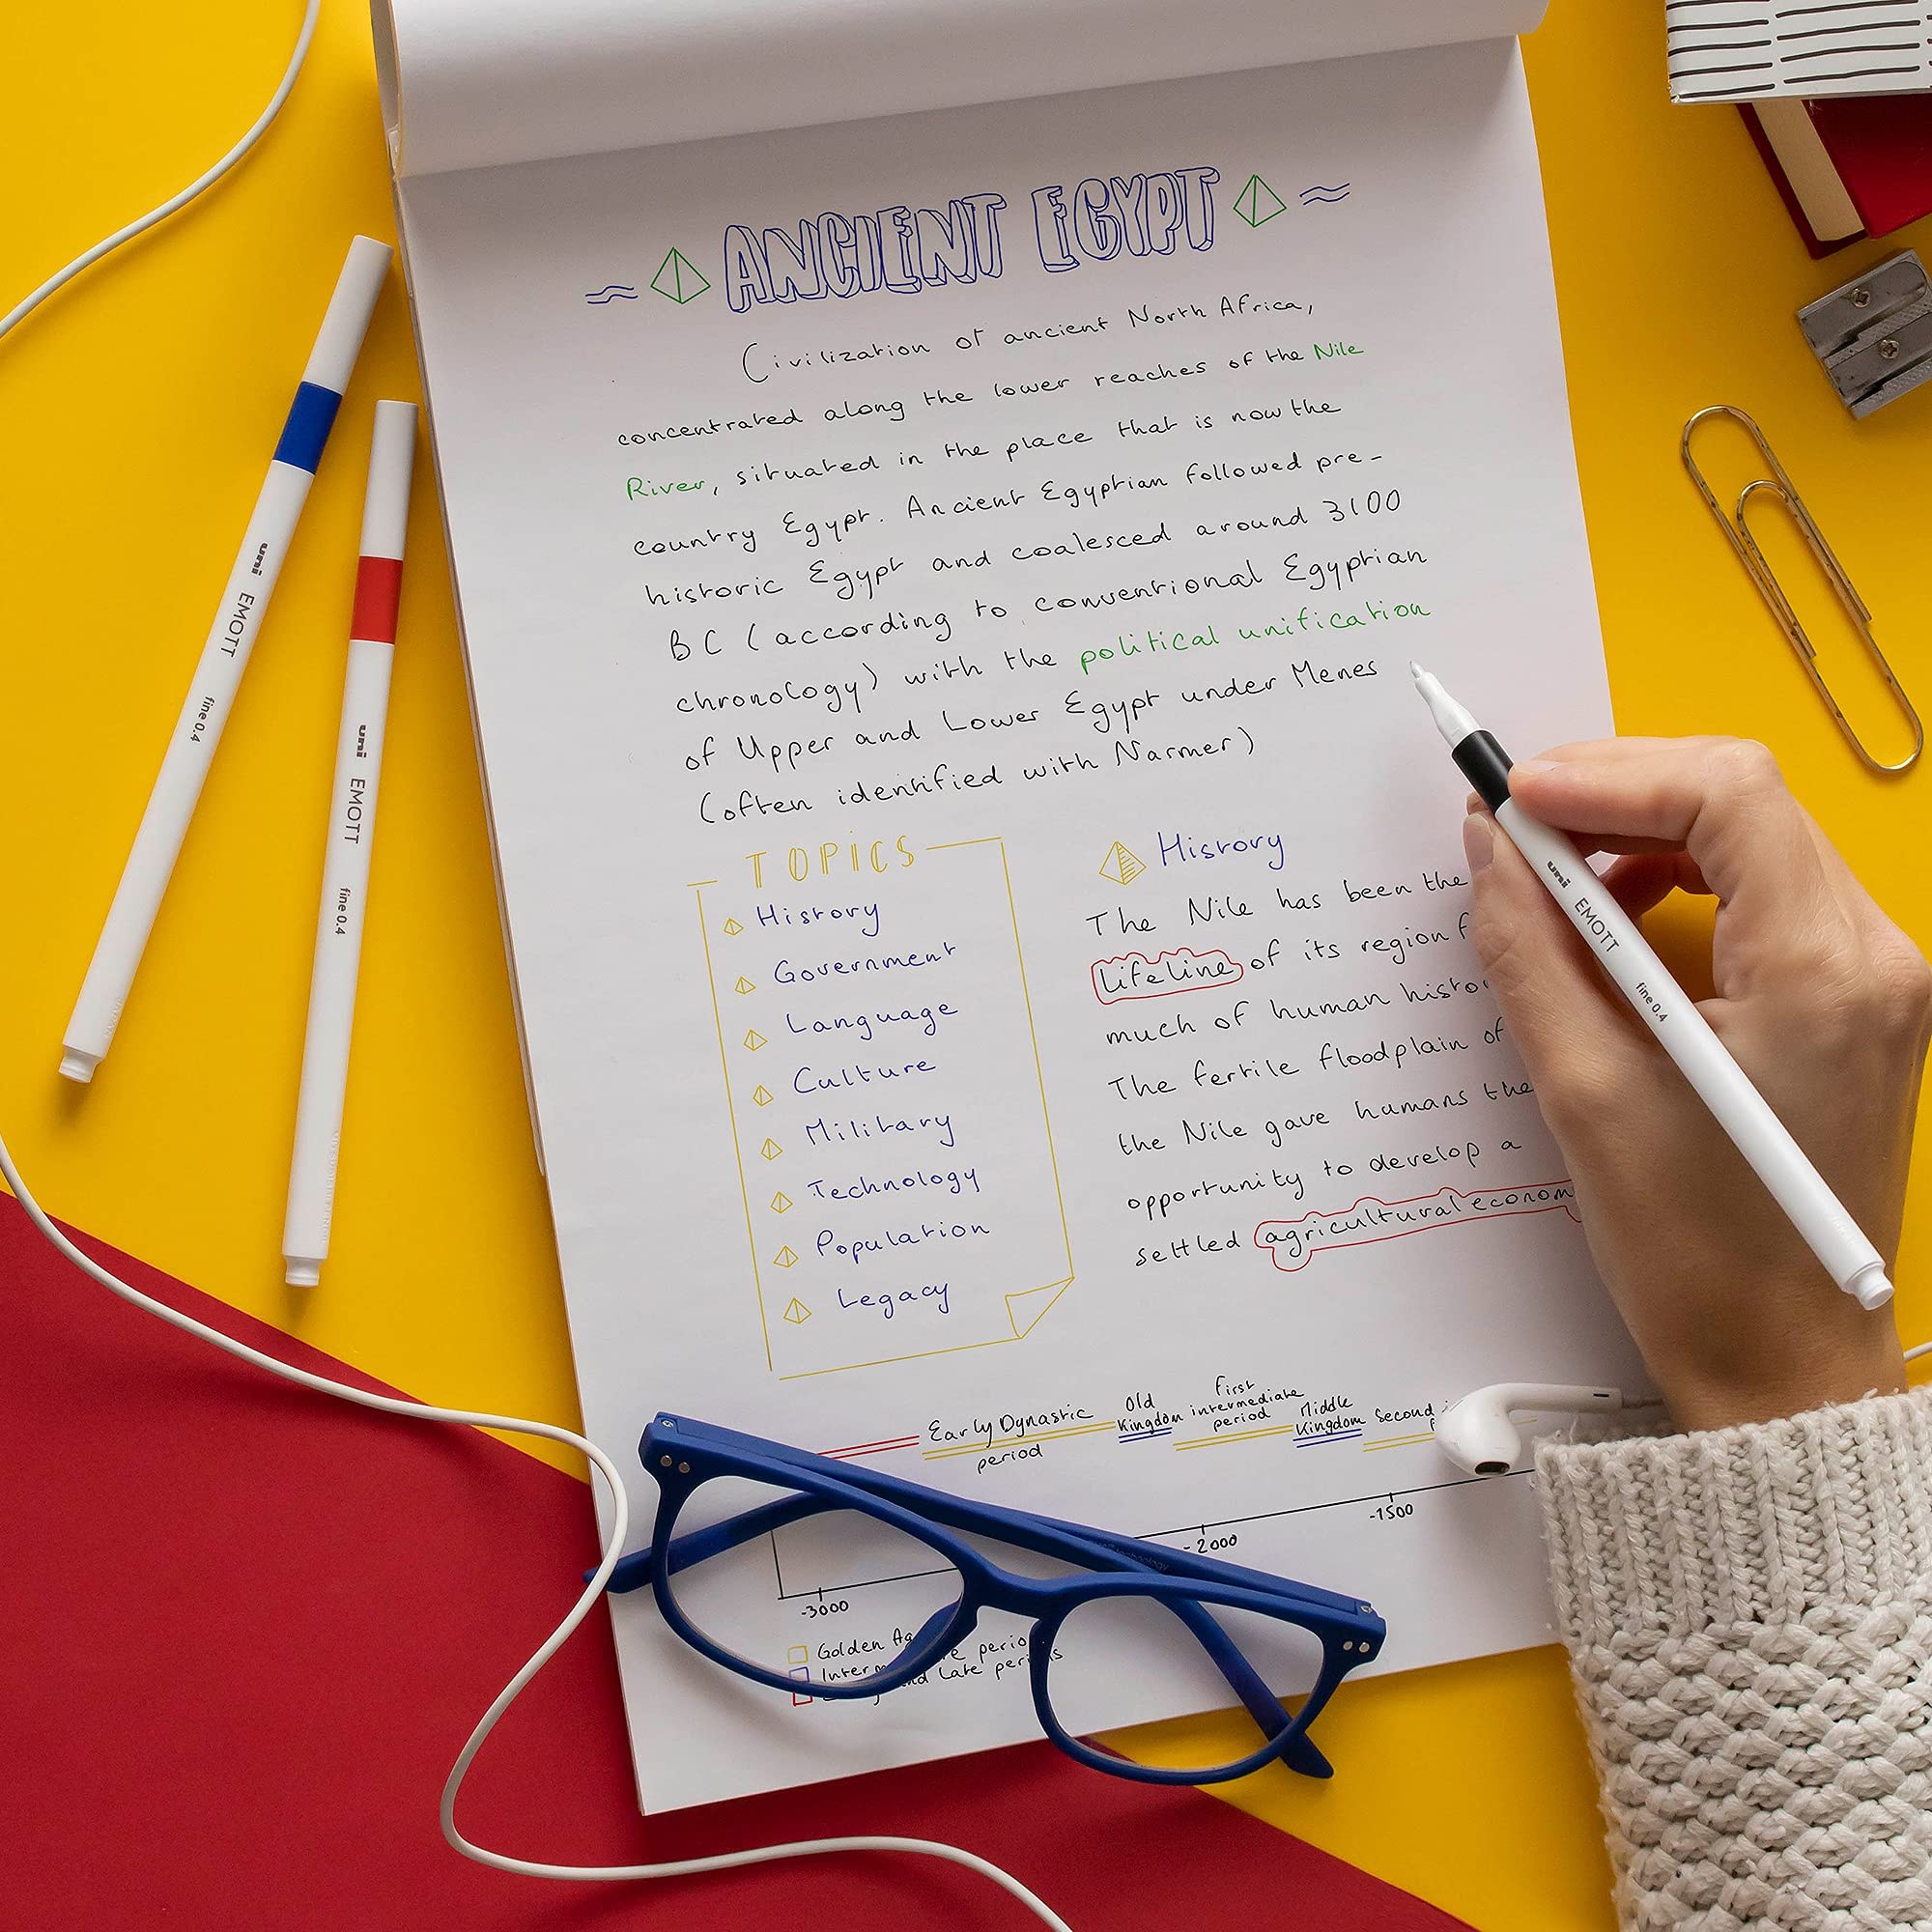 ANCIENT EGYPT
Civilization of ancient North Africa,
concentrated along the lower reaches of the Nile
River, situated in the place that is now the
country Egypt. Ancient Egyptian followed pre-
historic Egypt and coalesced around 3100
BC (according to conventional Egyptian
chronology) with the political unification
of Upper and Lower Egypt under Menes
(often identified with Narmer)
TOPICS
History
Government
Language
Culture
Military
Technology
Population
Legacy
History
The Nile has been the
lifeline of its region
much of human
The fertile floodplain of
the Nile gave humans the
opportunity to develop a
settled agricultural
Early Dynastic
period
Old
Kingdom
First
intermediate
period
Middle
Kingdom
Second
-3000
-2000
-1500
Golden
and Late periods
uni EMOTT fine 0.4
uni EMOTT fine 0.4
uni EMOTT fine 0.4